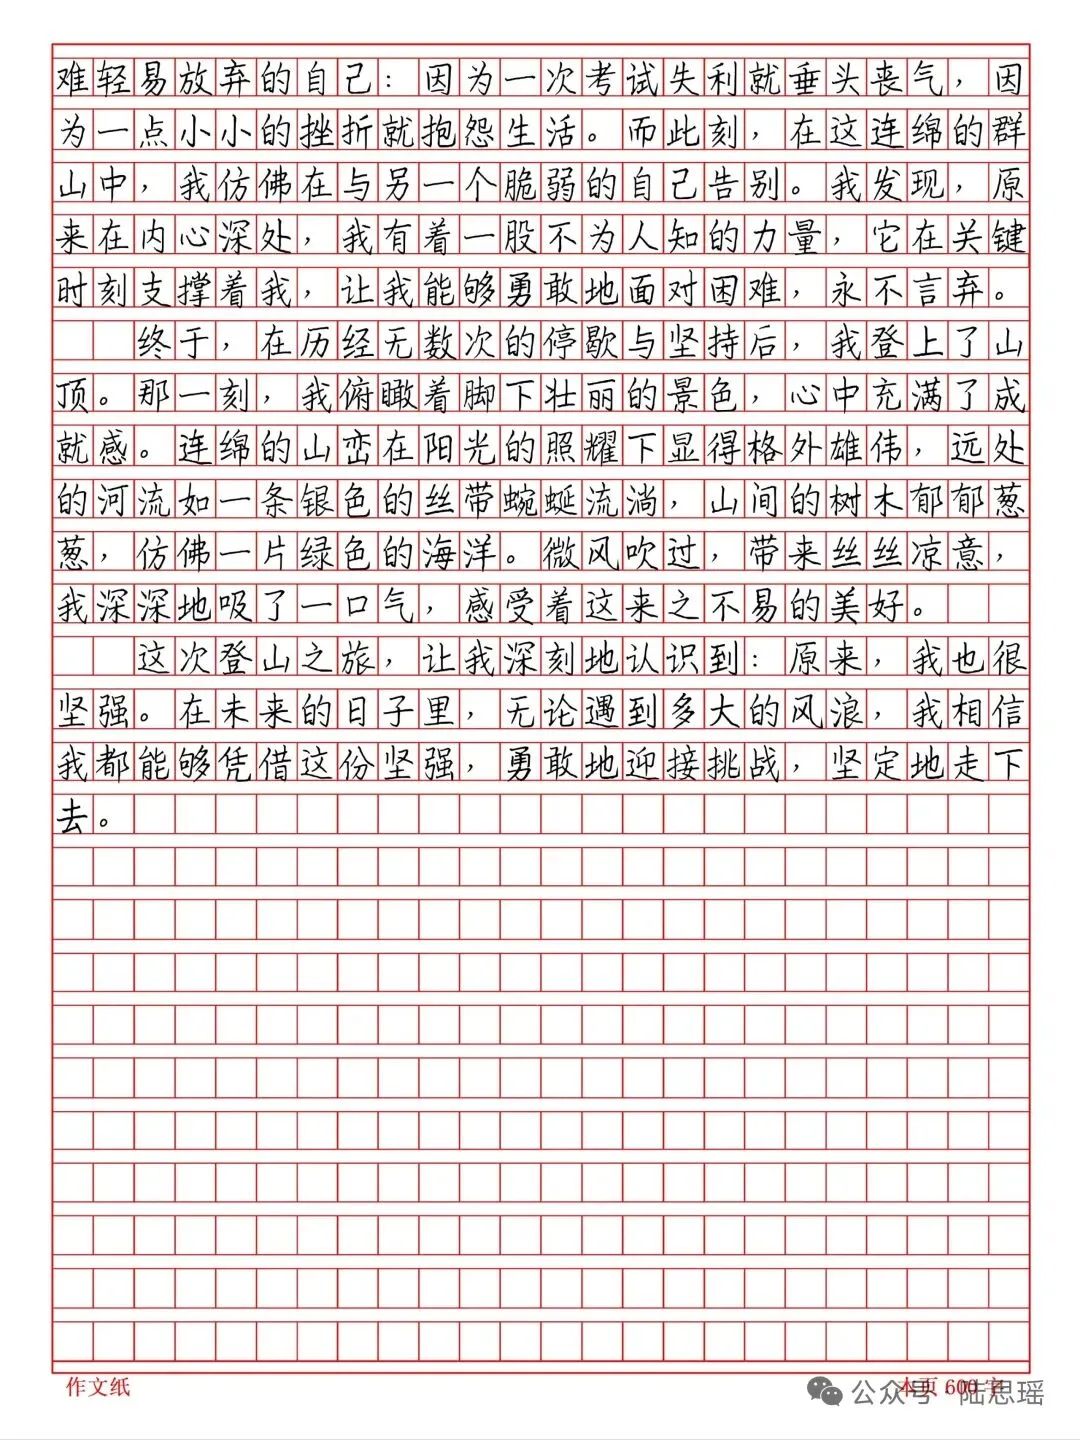 难轻易放弃的自己：因为一次考试失利就垂头丧气，因
为一点小小的挫折就抱怨生活。而此刻，在这连绵的群
山中，我仿佛在与另一个脆弱的自己告别。我发现，原
来在内心深处，我有着一股不为人知的力量，它在关键
时刻支撑着我，让我能够勇敢地面对困难，永不言弃。
终于，在历经无数次的停歇与坚持后，我登上了山
顶。那一刻，我俯瞰着脚下壮丽的景色，心中充满了成
就感。连绵的山峦在阳光的照耀下显得格外雄伟，远处
的河流如一条银色的丝带蜿蜒流淌，山间的树木郁郁葱
葱，仿佛一片绿色的海洋。微风吹过，带来丝丝凉意，
我深深地吸了一口气，感受着这来之不易的美好。
这次登山之旅，让我深刻地认识到：原来，我也很
坚强。在未来的日子里，无论遇到多大的风浪，我相信
我都能够凭借这份坚强，勇敢地迎接挑战，坚定地走下
去。
作文纸
本页 600 字
公众号·陆思瑶